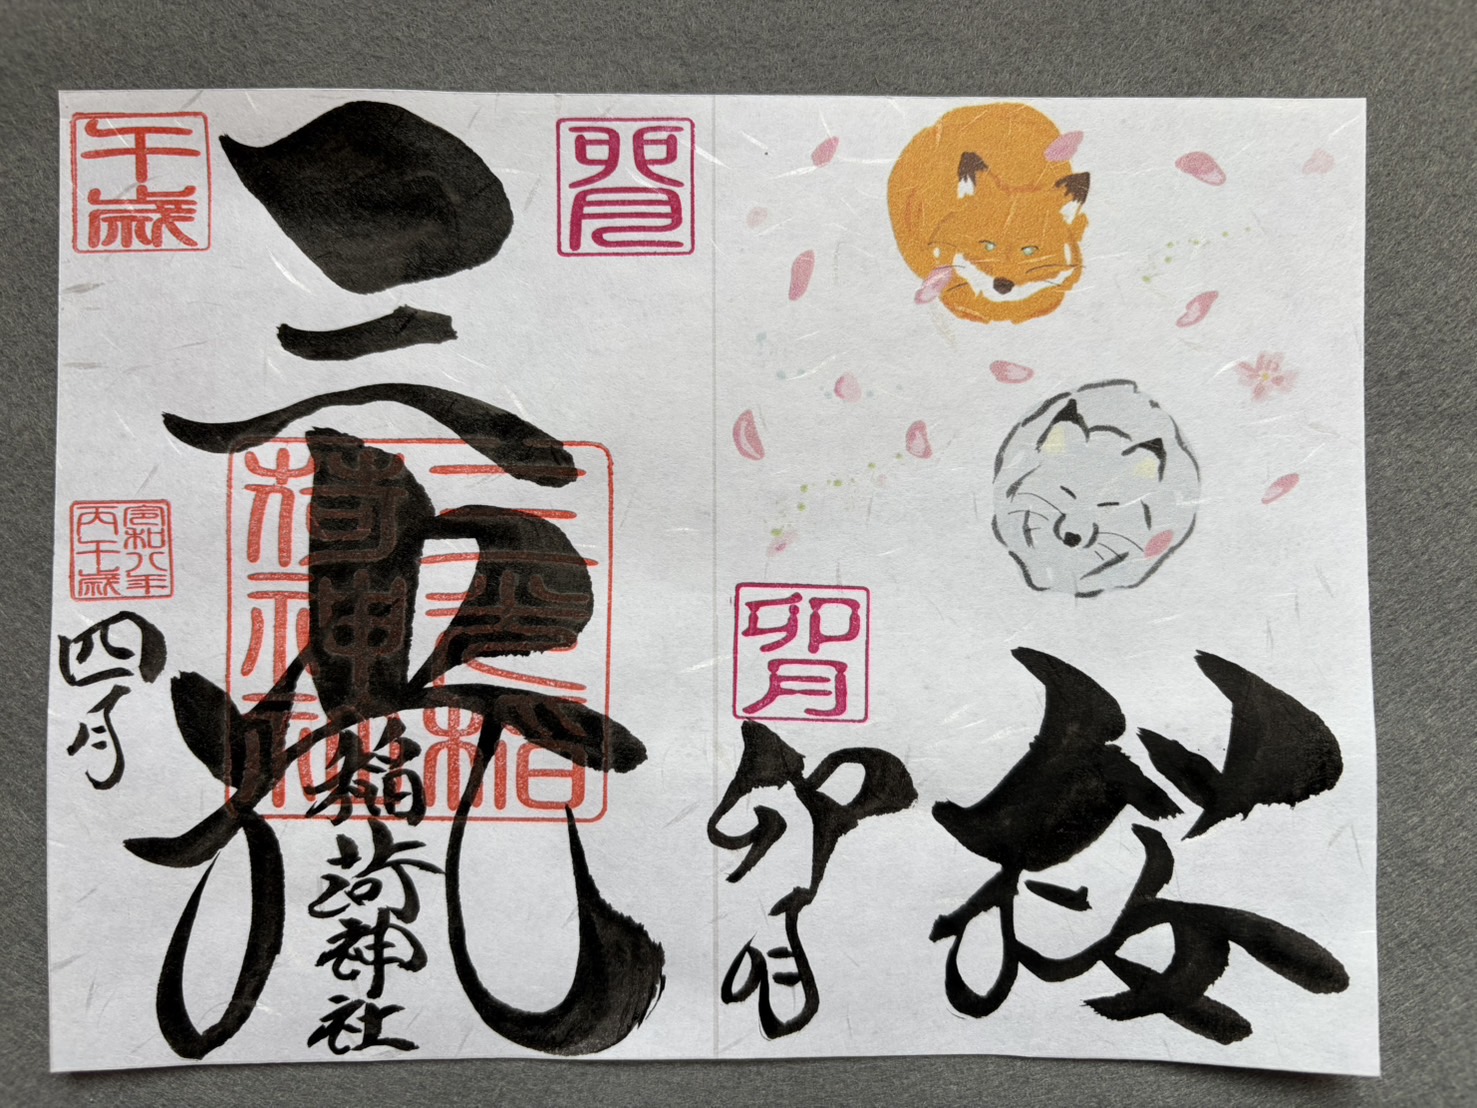 桜
卯月
卯月
卯月
三光
稲荷神社
三光稲
荷神社
午歳
令和八年
丙午歳
四月